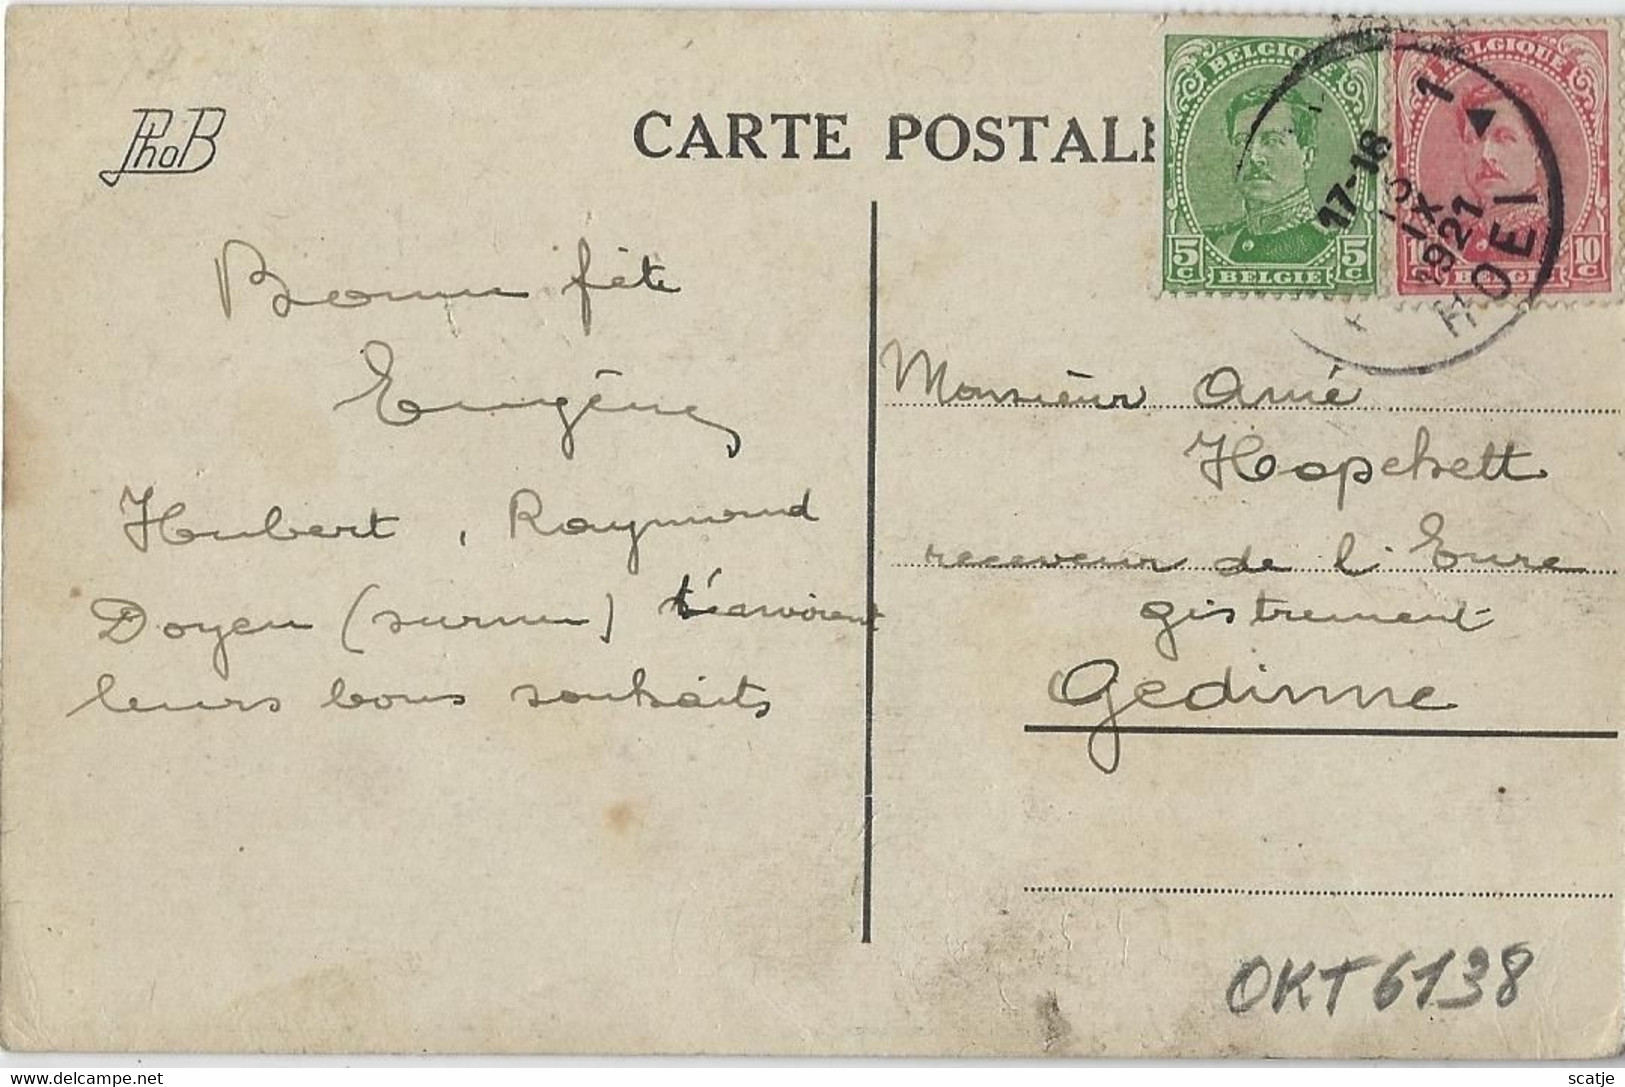 PhoB
CARTE POSTALE
BELGIQUE
5c 5c
BELGIE
BELGIQUE
10c
BELGIE
1
17-18
IX
1921
HOEI
Bonne fête
Eugène
Hubert, Raymond
Doyen (surnu) t'envoient
leurs bons souhaits
Monsieur Aimé
Hopchett
receveur de l'Enre
gistrement
Gedinne
OKT6138
scatje